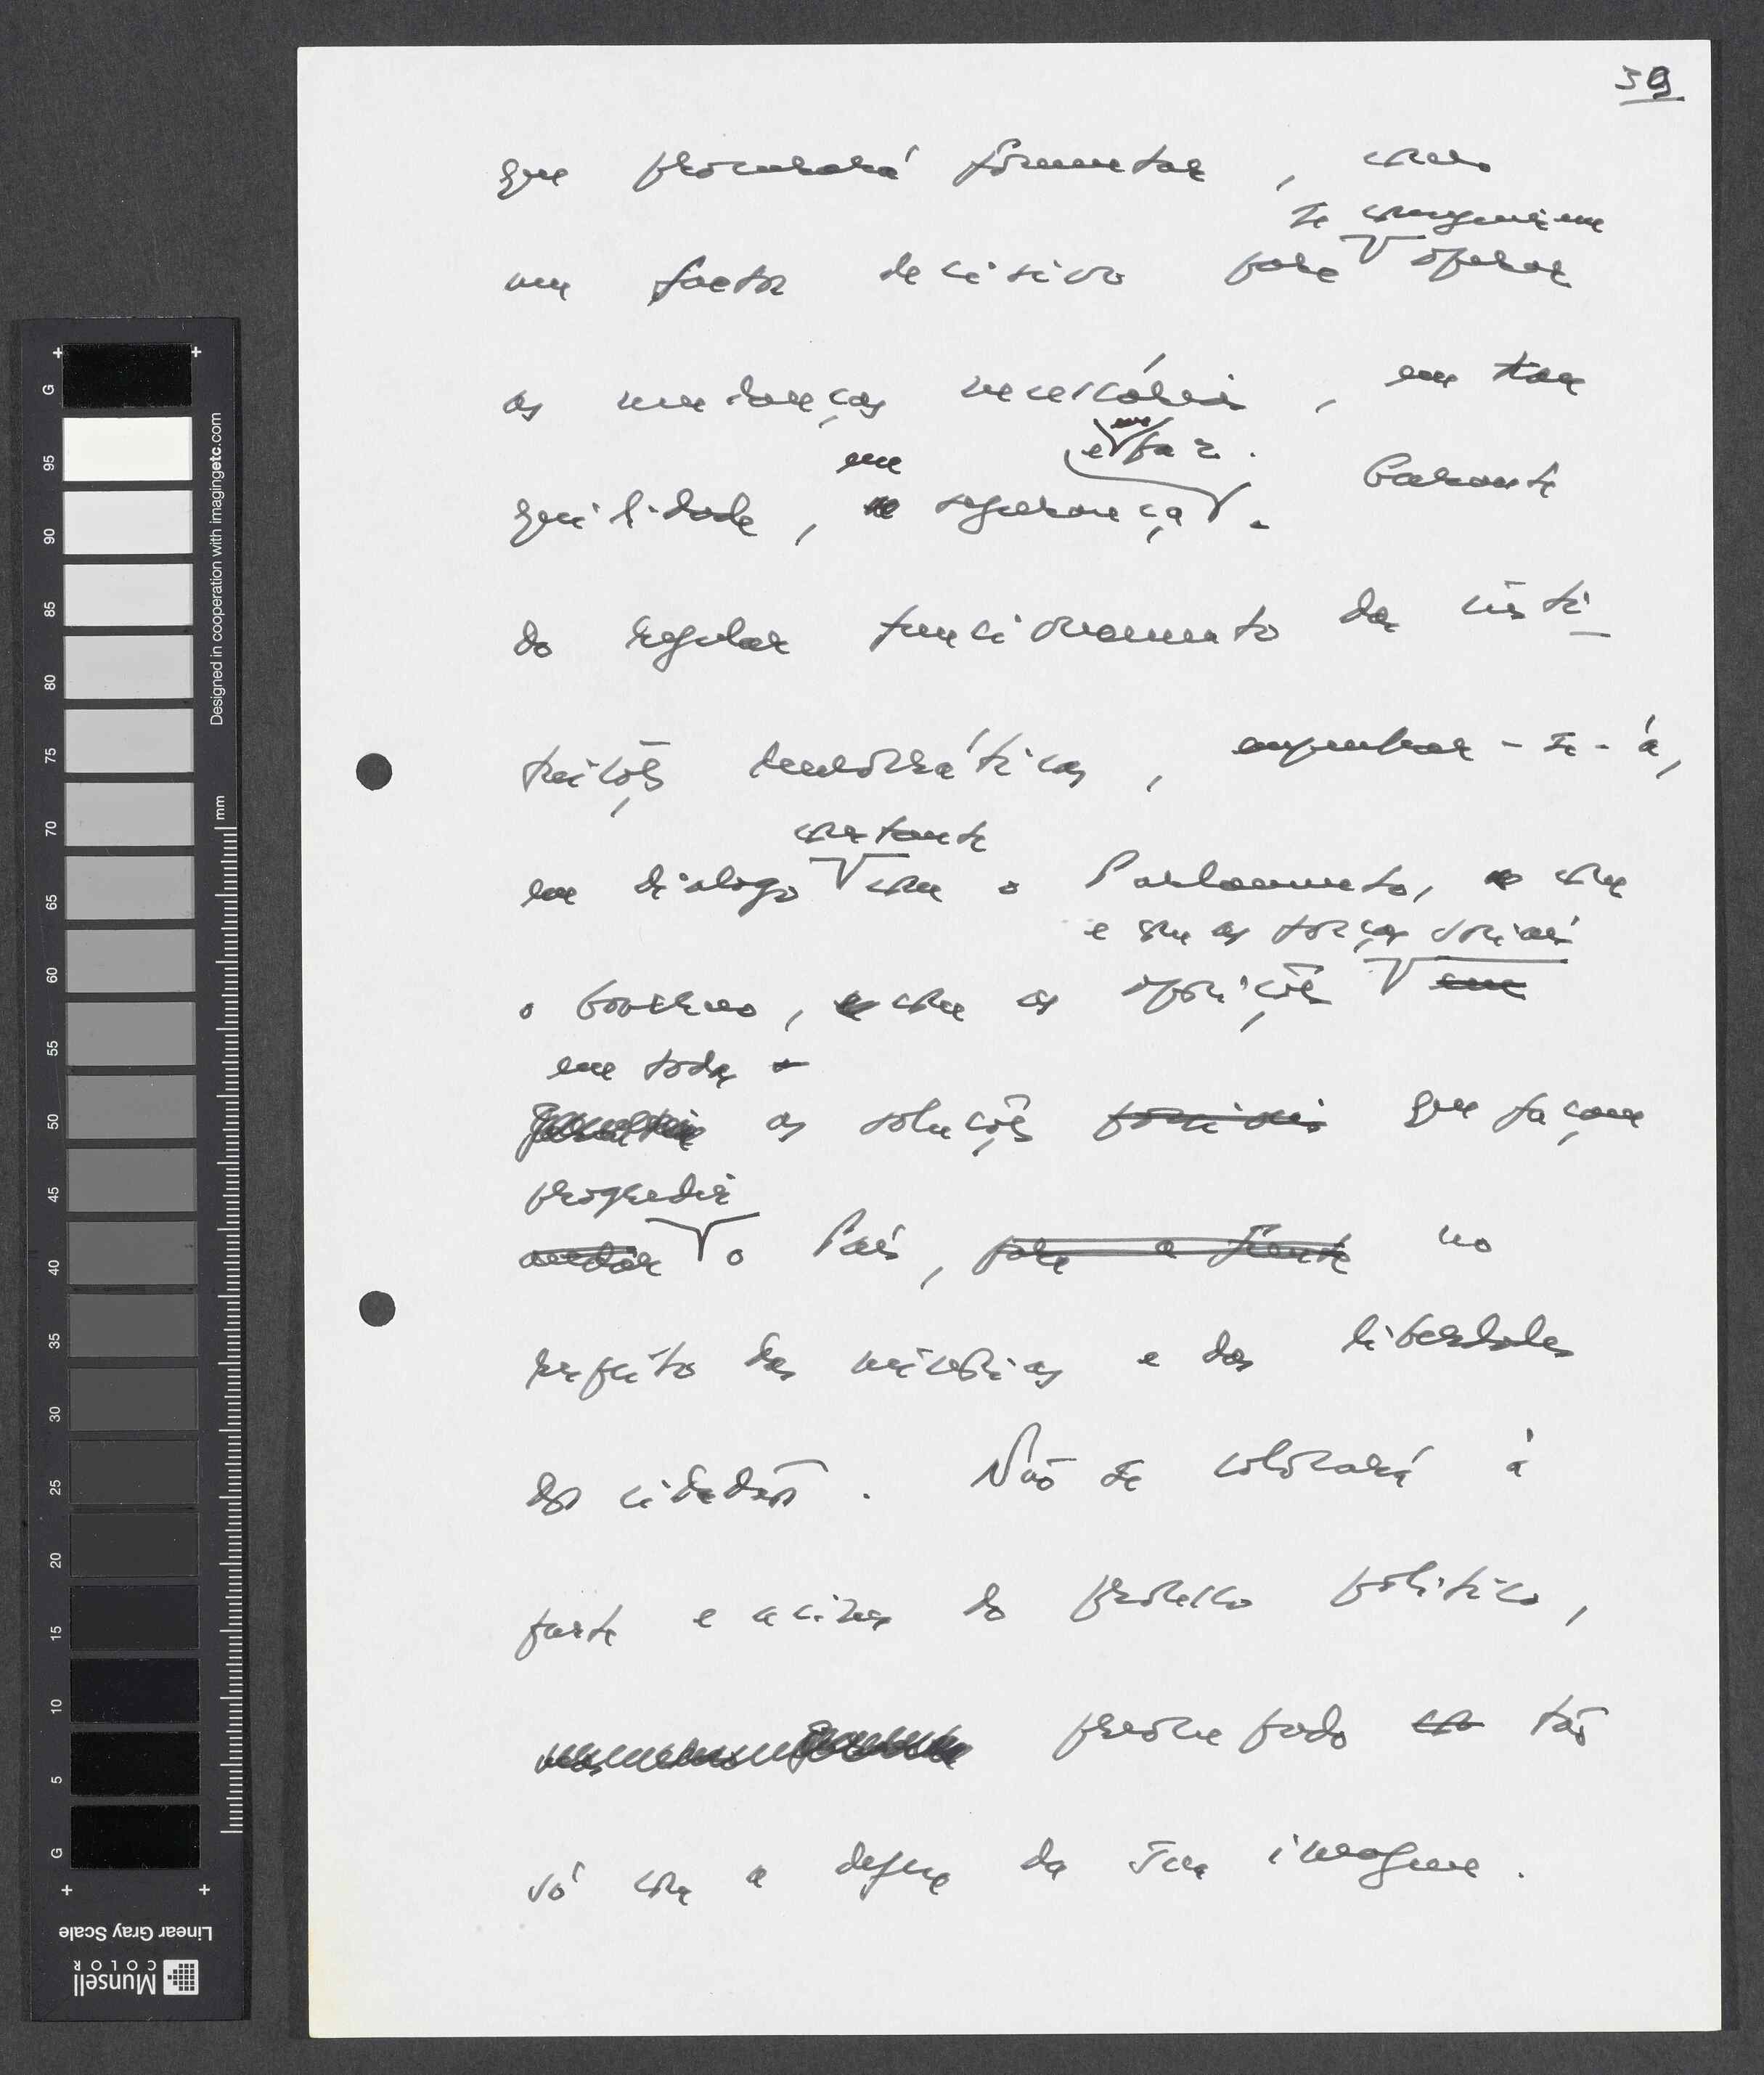 39
que procurará fomentar, como
um factor decisivo para se conseguirem operar
as mudanças necessárias, em tran
quilidade, em segurança e em paz. Garante
do regular funcionamento das insti-
tuições democráticas, empenhar-se-á,
em diálogo constante com o Parlamento, com
o Governo, com as oposições e com as forças sociais
em todas as soluções que façam
progredir o País, no
respeito das minorias e das liberdades
dos cidadãos. Não se colocará à
parte e acima do processo político,
preocupado tão
só com a defesa da sua imagem.
G
95
90
85
80
75
70
65
60
55
50
45
40
35
30
25
20
15
10
5
G
mm
Designed in cooperation with imagingetc.com
Linear Gray Scale
Munsell
COLOR